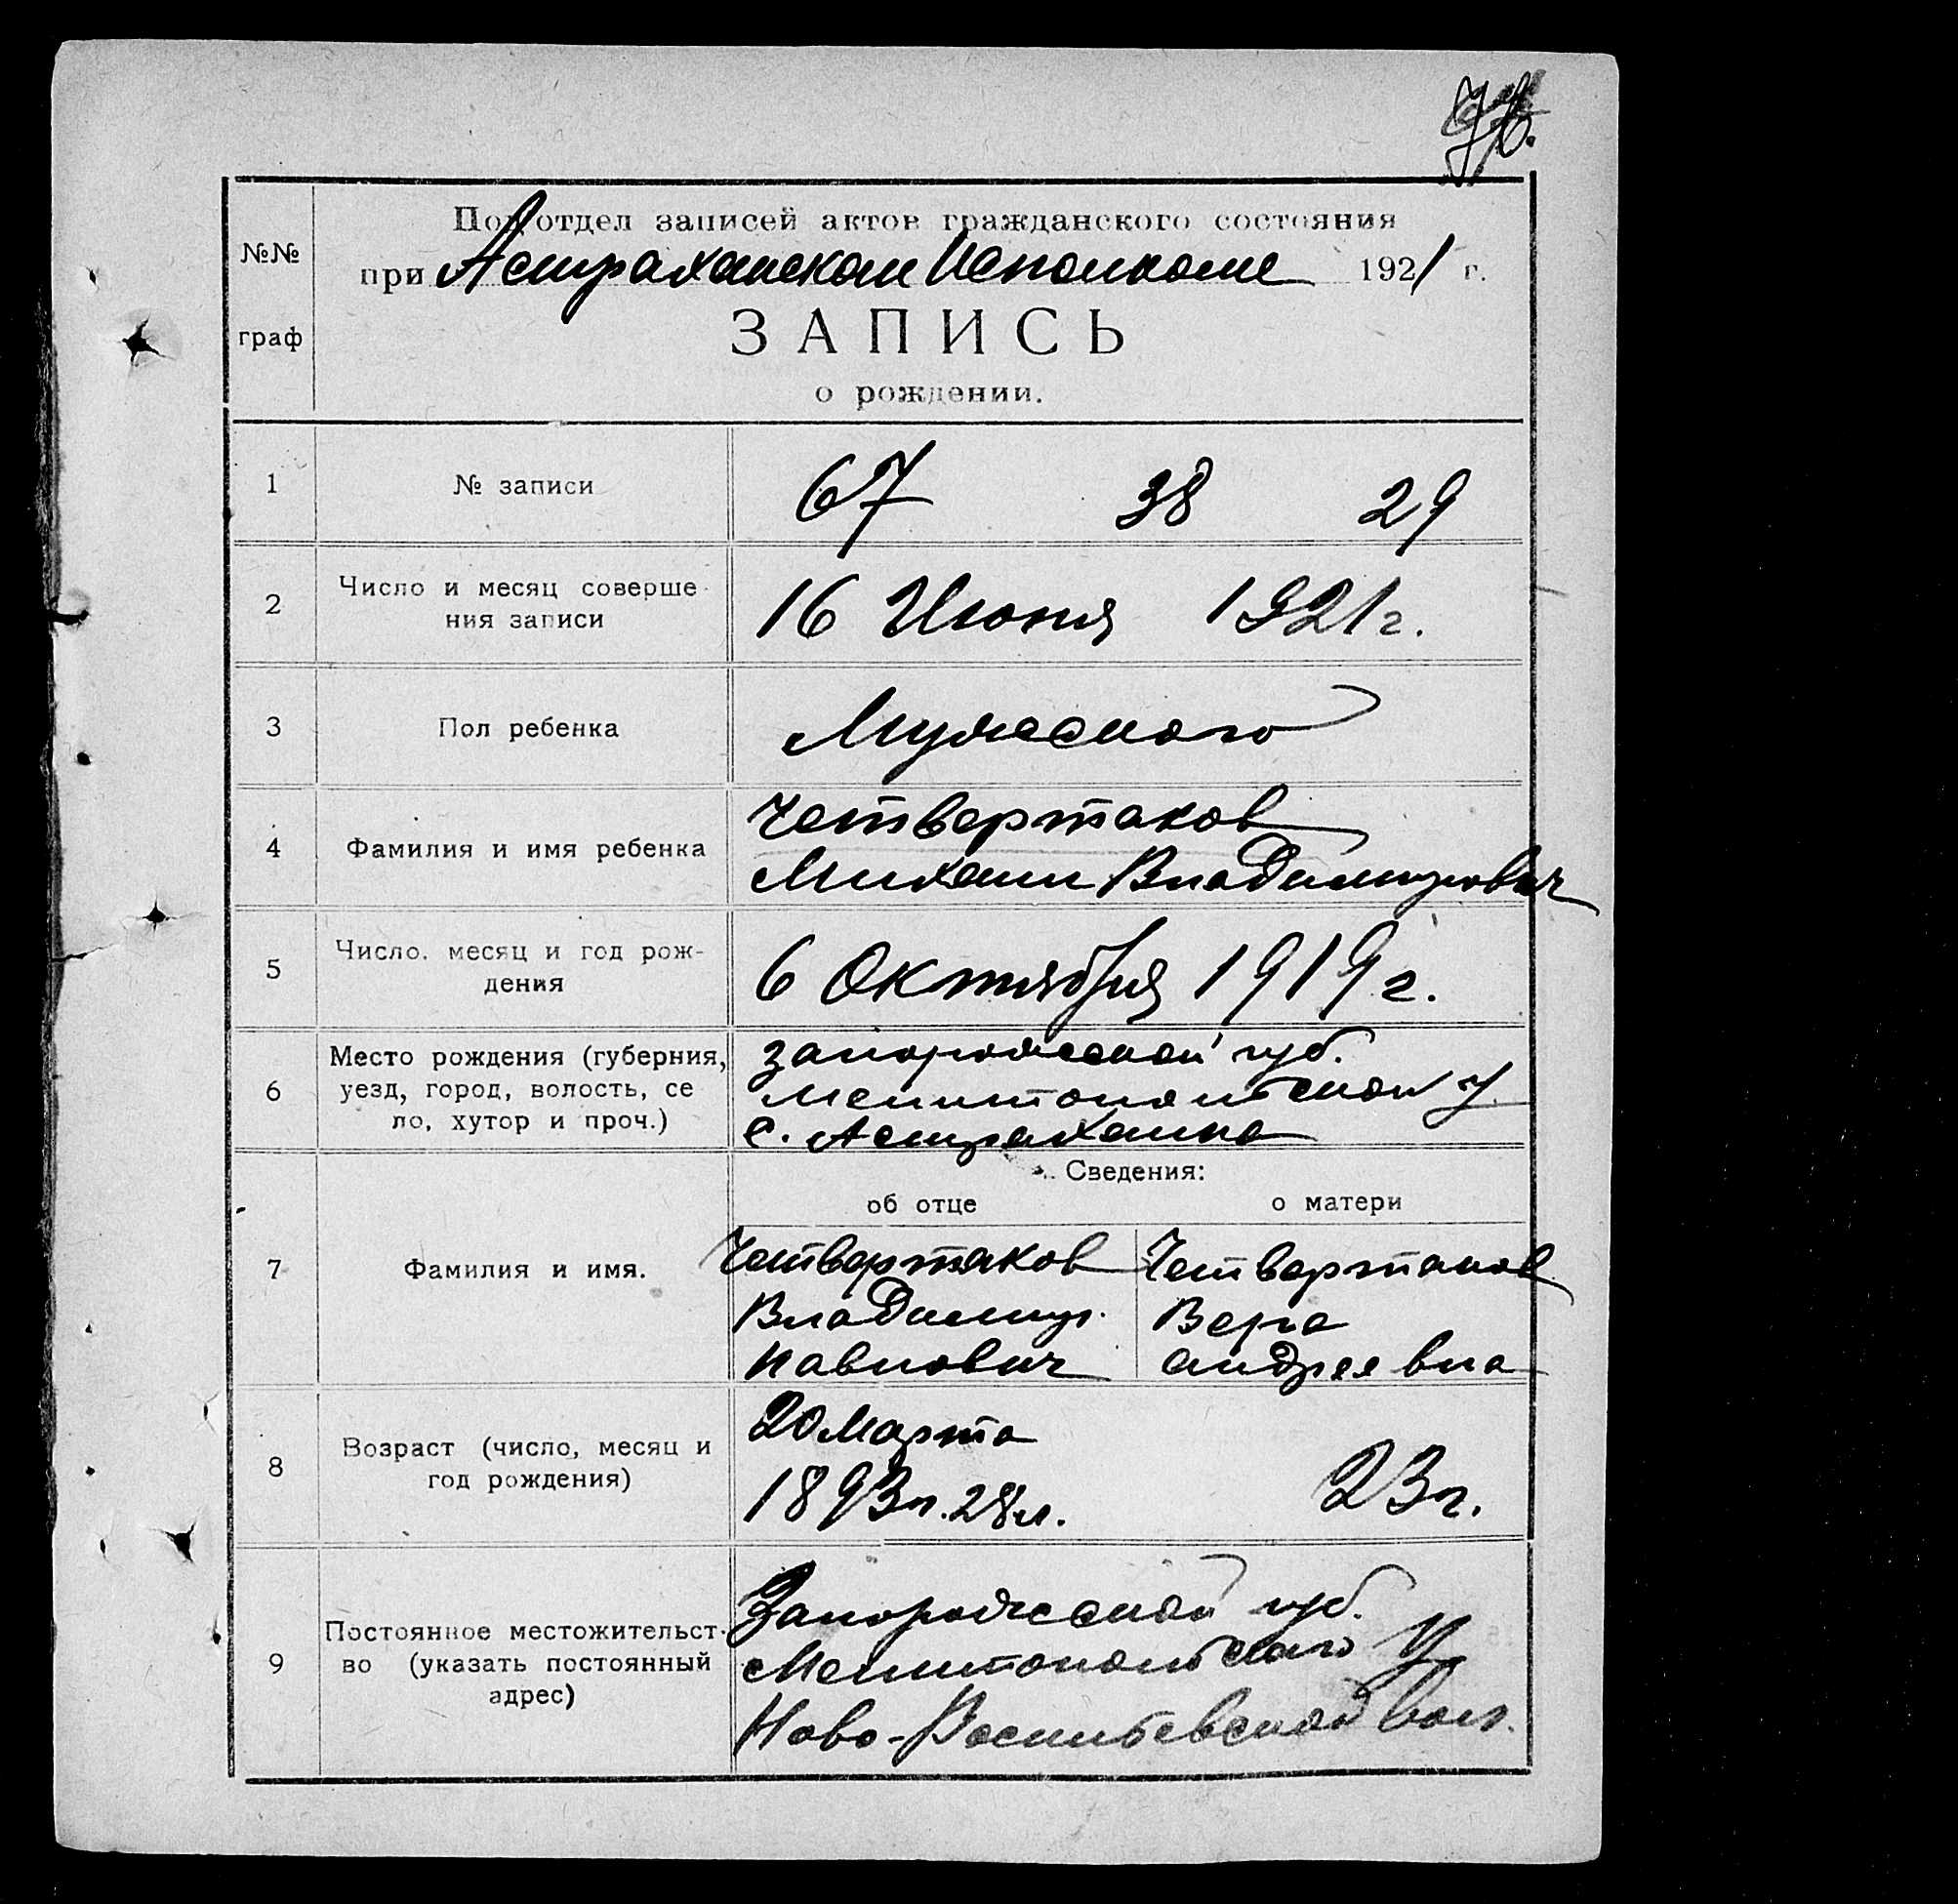 №№
граф
Подотдел записей актов гражданского состояния
при Астраханском Исполкоме 1921 г.
ЗАПИСЬ
о рождении.
1 № записи 67 38 29
2 Число и месяц соверше-
ния записи
16 Июня 1921 г.
3 Пол ребенка Мужского
4 Фамилия и имя ребенка
Четвертаков
Михаил Владимирович
5 Число. месяц и год рож-
дения
6 Октября 1919 г.
6 Место рождения (губерния,
уезд, город, волость, се
ло, хутор и проч.)
Запорожской губ.
Мелитопольской У.
с. Астраханка
Сведения:
об отце о матери
7 Фамилия и имя.
Четвертаков
Владимир
Павлович
Четвертаков
Вера
Андреевна
8 Возраст (число, месяц и
год рождения)
20 Марта
1893 г. 28 л.
23 г.
9 Постоянное местожительст-
во (указать постоянный
адрес)
Запорожской губ.
Мелитопольского У
Ново-Васильевской вол.